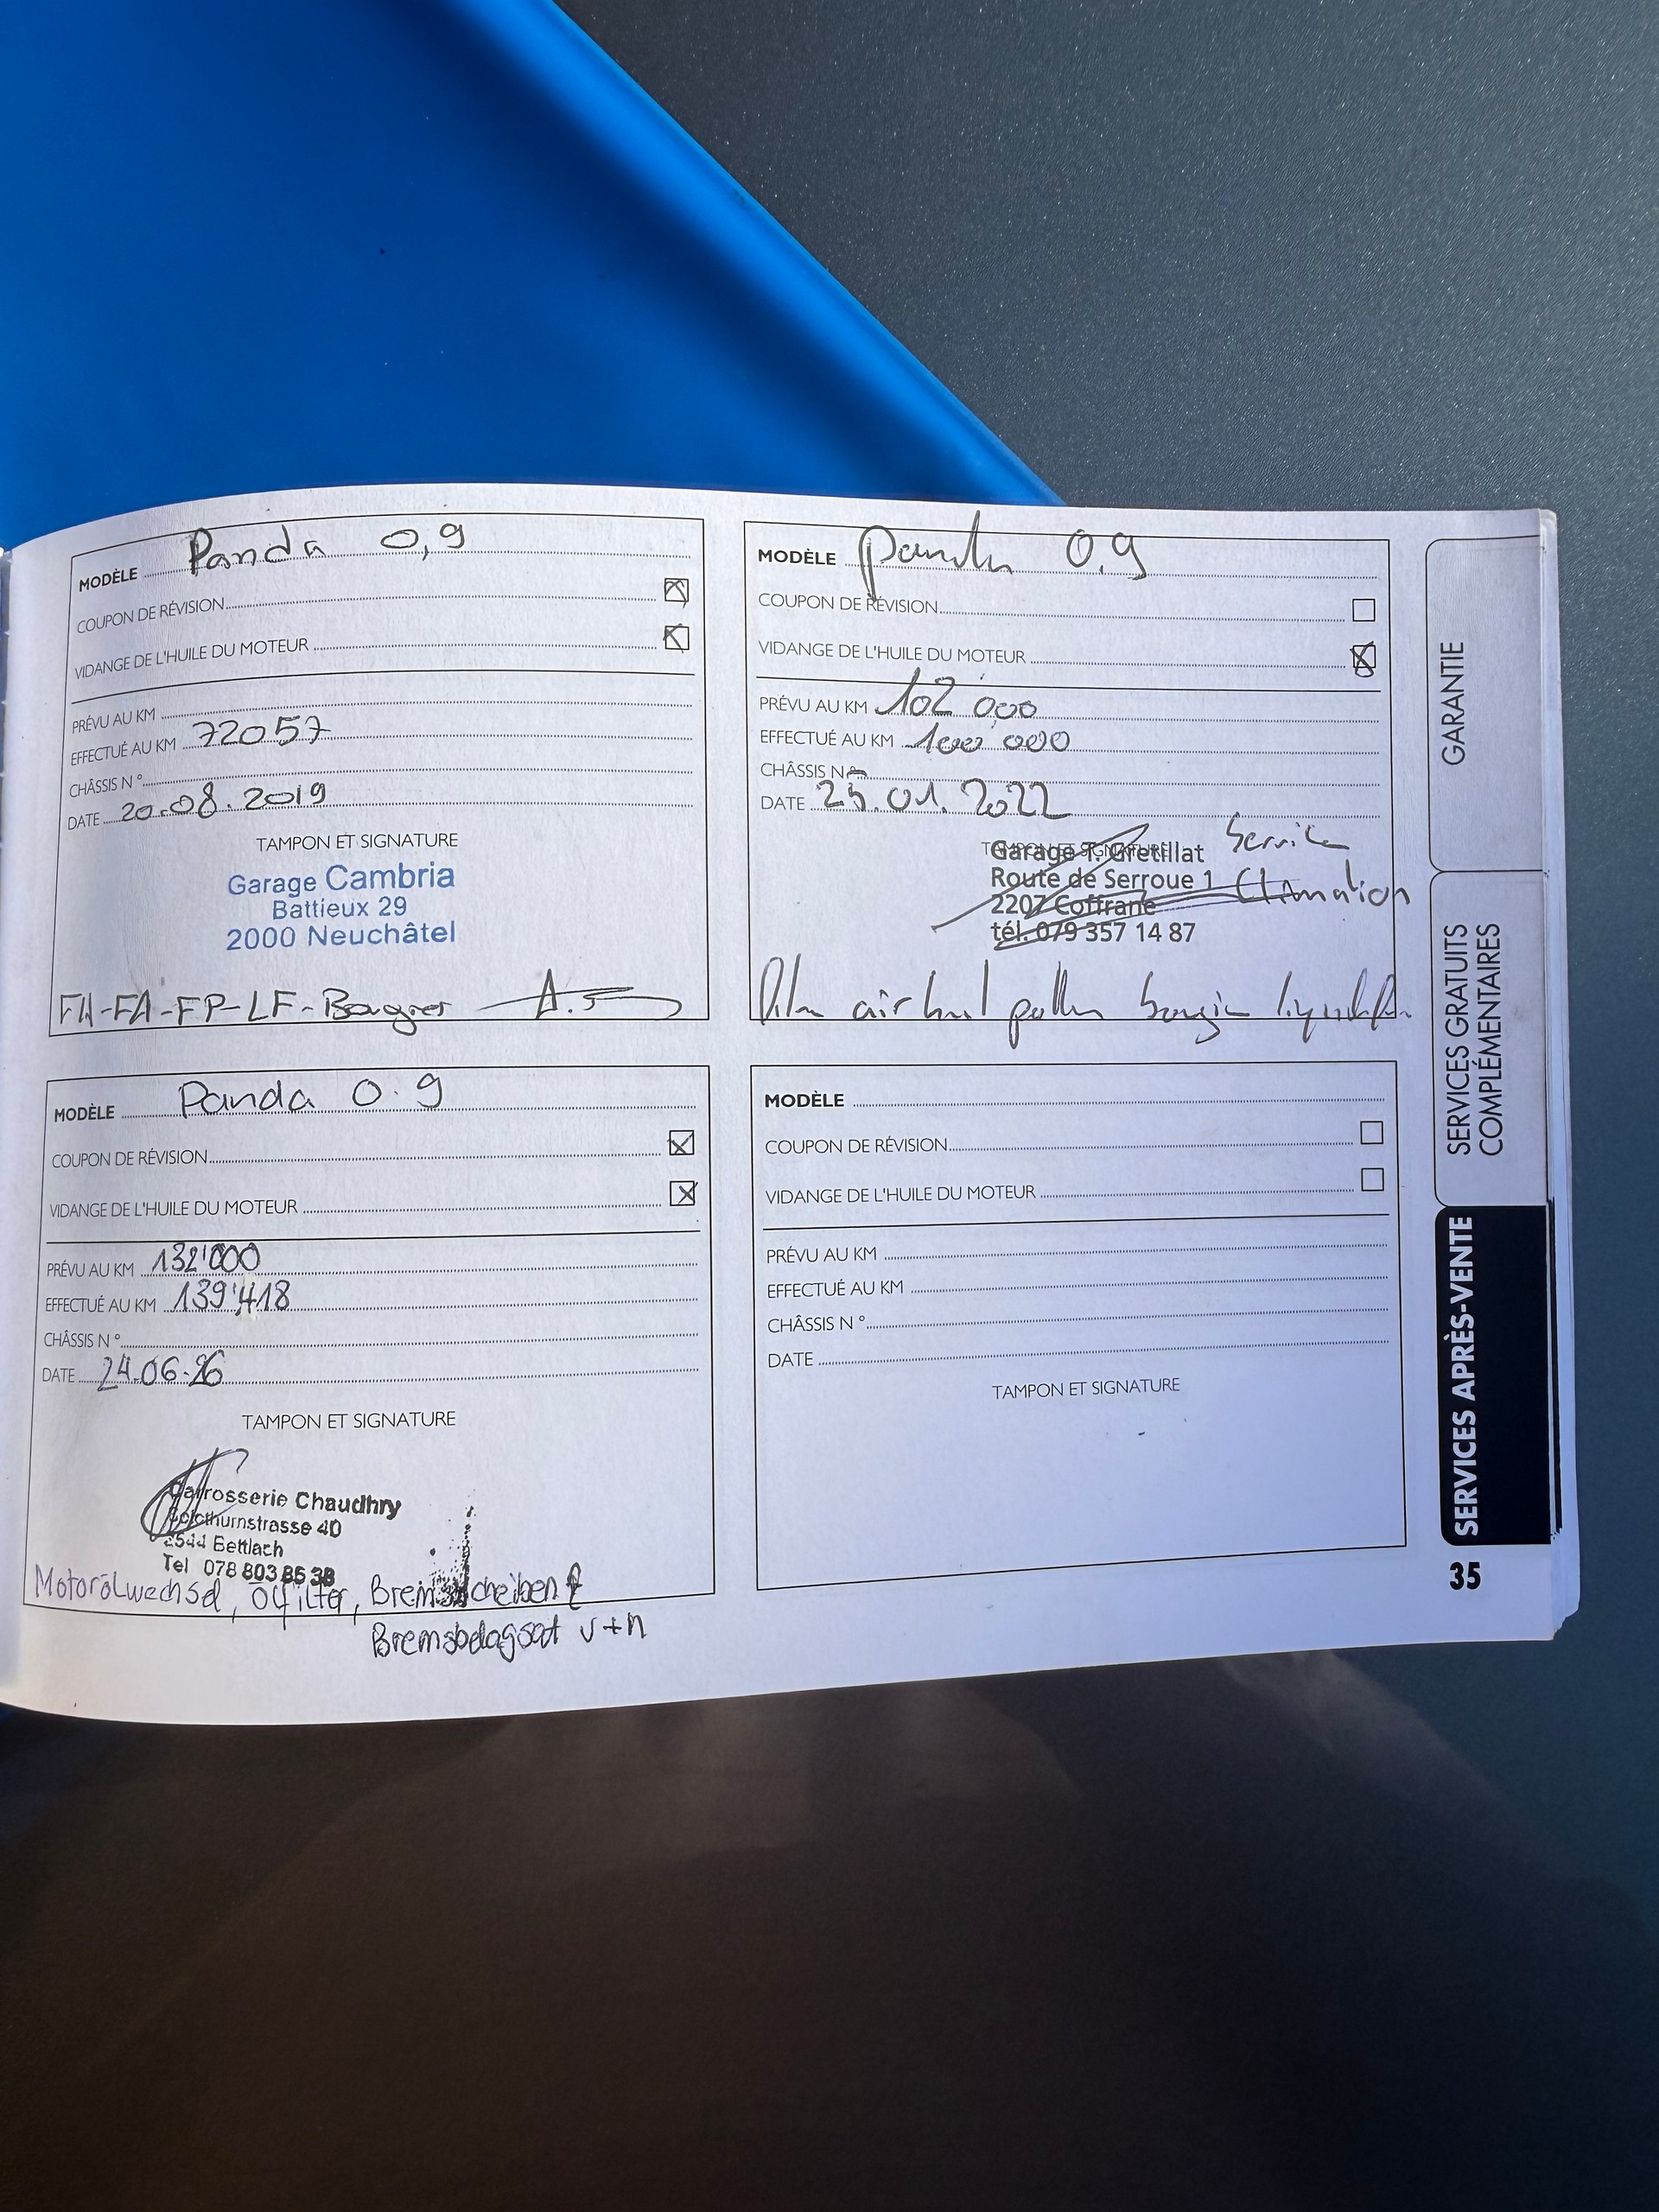 MODÈLE Panda 0,9
COUPON DE RÉVISION
VIDANGE DE L'HUILE DU MOTEUR
PRÉVU AU KM
EFFECTUÉ AU KM 72057
CHÂSSIS N°
DATE 20.08.2019
TAMPON ET SIGNATURE
Garage Cambria
Battieux 29
2000 Neuchâtel
FH-FA-FP-LF-Bougies
MODÈLE panda 0.9
COUPON DE RÉVISION
VIDANGE DE L'HUILE DU MOTEUR
PRÉVU AU KM 102'000
EFFECTUÉ AU KM 100'000
CHÂSSIS N°
DATE 25.01.2022
TAMPON ET SIGNATURE
Garage T. Gretillat Service
Route de Serroue 1
2207 Coffrane
tél. 079 357 14 87
air pollen bougie
MODÈLE Panda 0.9
COUPON DE RÉVISION
VIDANGE DE L'HUILE DU MOTEUR
PRÉVU AU KM 132'000
EFFECTUÉ AU KM 139'418
CHÂSSIS N°
DATE 24.06.26
TAMPON ET SIGNATURE
Carrosserie Chaudhry
Solothurnstrasse 40
2544 Bettlach
Tel 078 803 85 38
Motorölwechsel, Ölfilter, Bremsscheiben &
Bremsbelagsat v+h
MODÈLE
COUPON DE RÉVISION
VIDANGE DE L'HUILE DU MOTEUR
PRÉVU AU KM
EFFECTUÉ AU KM
CHÂSSIS N°
DATE
TAMPON ET SIGNATURE
GARANTIE
SERVICES GRATUITS
COMPLÉMENTAIRES
SERVICES APRÈS-VENTE
35